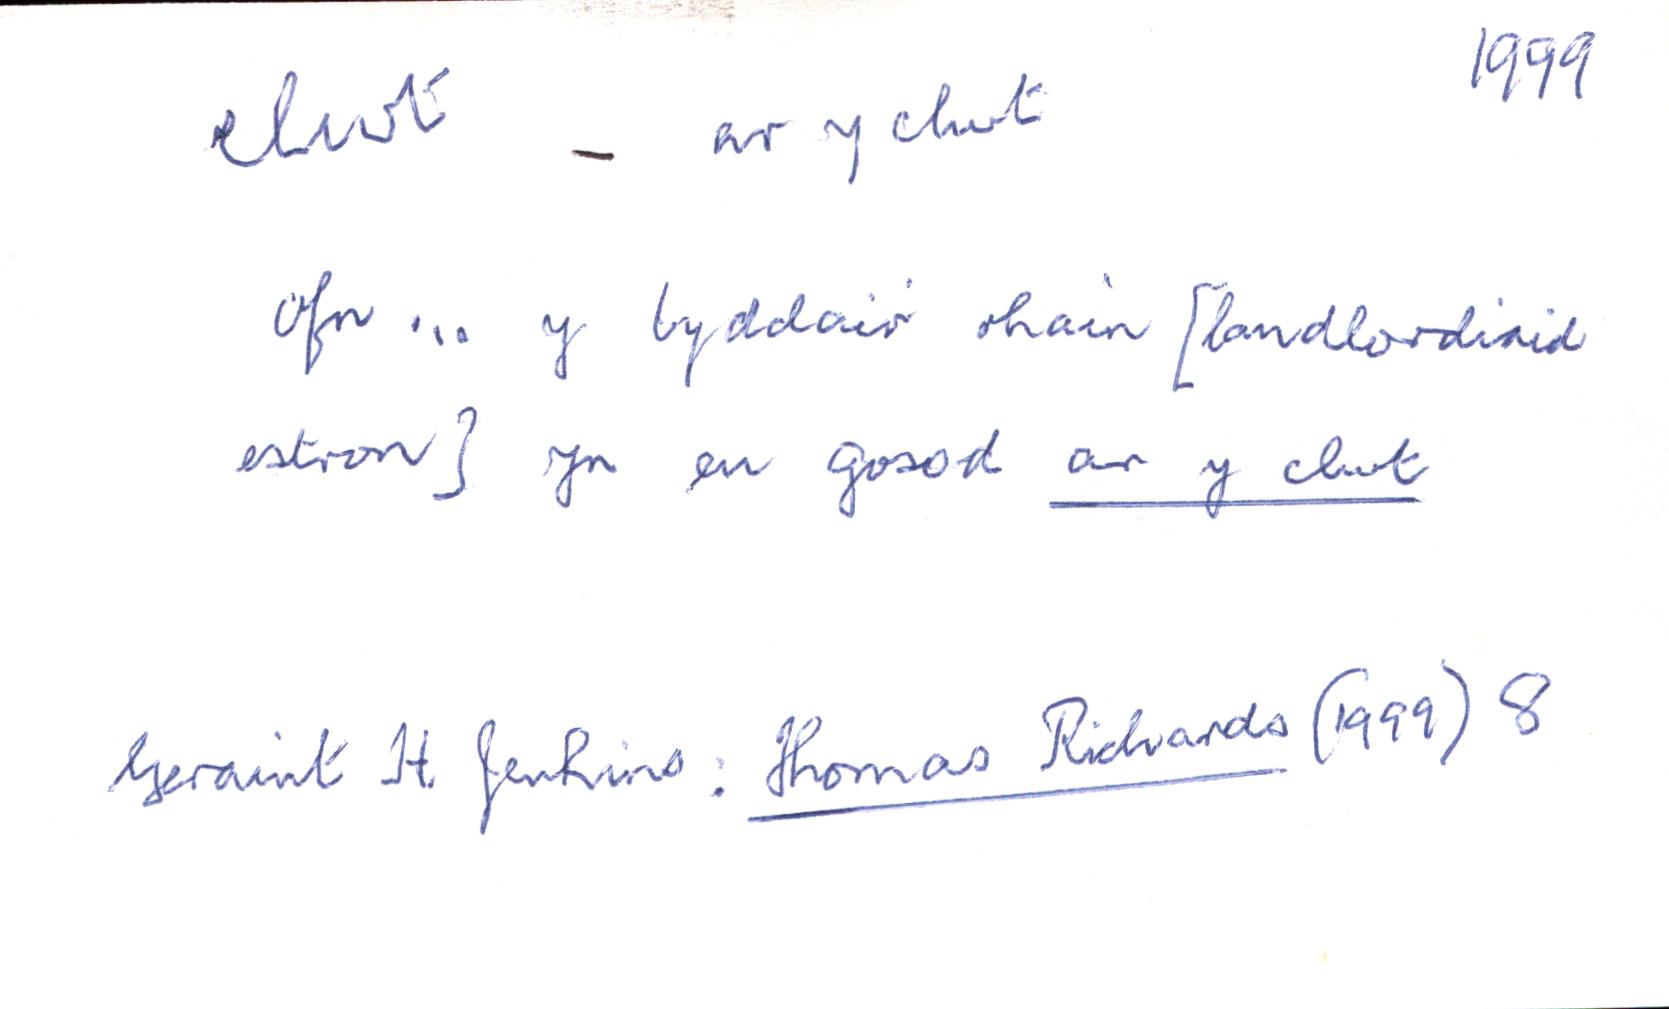 clwt – ar y clwt 1999
Ofn ... y byddai'r rhain [landlordiaid
estron] yn eu gosod ar y clwt
Geraint H. Jenkins: Thomas Richards (1999) 8